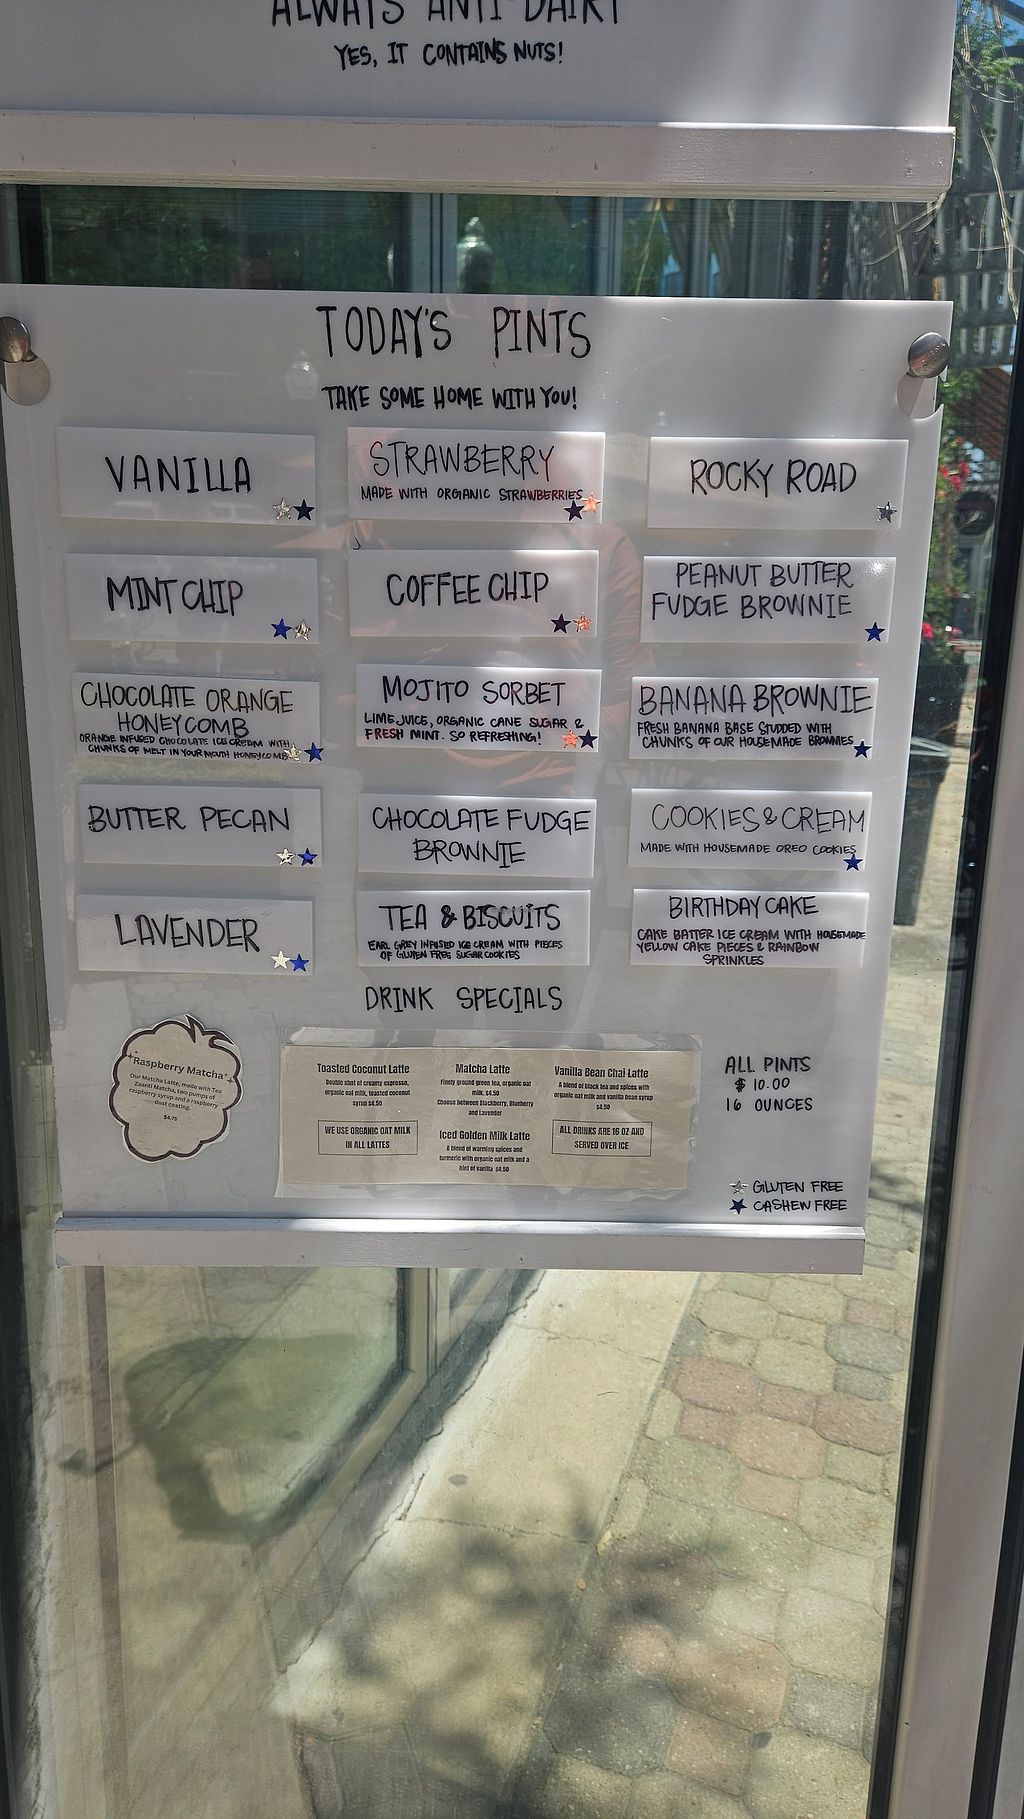 ALWAYS ANTI-DAIRY
YES, IT CONTAINS NUTS!
TODAY'S PINTS
TAKE SOME HOME WITH YOU!
VANILLA
STRAWBERRY
MADE WITH ORGANIC STRAWBERRIES
ROCKY ROAD
MINT CHIP
COFFEE CHIP
PEANUT BUTTER
FUDGE BROWNIE
CHOCOLATE ORANGE
HONEYCOMB
ORANGE INFUSED CHOCOLATE ICE CREAM WITH
CHUNKS OF MELT IN YOUR MOUTH HONEYCOMB
MOJITO SORBET
LIME JUICE, ORGANIC CANE SUGAR &
FRESH MINT. SO REFRESHING!
BANANA BROWNIE
FRESH BANANA BASE STUDDED WITH
CHUNKS OF OUR HOUSEMADE BROWNIES
BUTTER PECAN
CHOCOLATE FUDGE
BROWNIE
COOKIES & CREAM
MADE WITH HOUSEMADE OREO COOKIES
LAVENDER
TEA & BISCUITS
EARL GREY INFUSED ICE CREAM WITH PIECES
OF GLUTEN FREE SUGAR COOKIES
BIRTHDAY CAKE
CAKE BATTER ICE CREAM WITH HOUSEMADE
YELLOW CAKE PIECES & RAINBOW
SPRINKLES
DRINK SPECIALS
Raspberry Matcha
Our Matcha Latte, made with Tea
Zuanti Matcha, two pumps of
raspberry syrup and a raspberry
dust coating.
$4.75
Toasted Coconut Latte
Double shot of creamy espresso,
organic oat milk, toasted coconut
syrup $4.50
WE USE ORGANIC OAT MILK
IN ALL LATTES
Matcha Latte
Finely ground green tea, organic oat
milk. $4.50
Choose between Blackberry, Blueberry
and Lavender
Iced Golden Milk Latte
A blend of warming spices and
turmeric with organic oat milk and a
hint of vanilla $4.50
Vanilla Bean Chai Latte
A blend of black tea and spices with
organic oat milk and vanilla bean syrup
$4.50
ALL DRINKS ARE 16 OZ AND
SERVED OVER ICE
ALL PINTS
$10.00
16 OUNCES
GLUTEN FREE
CASHEW FREE